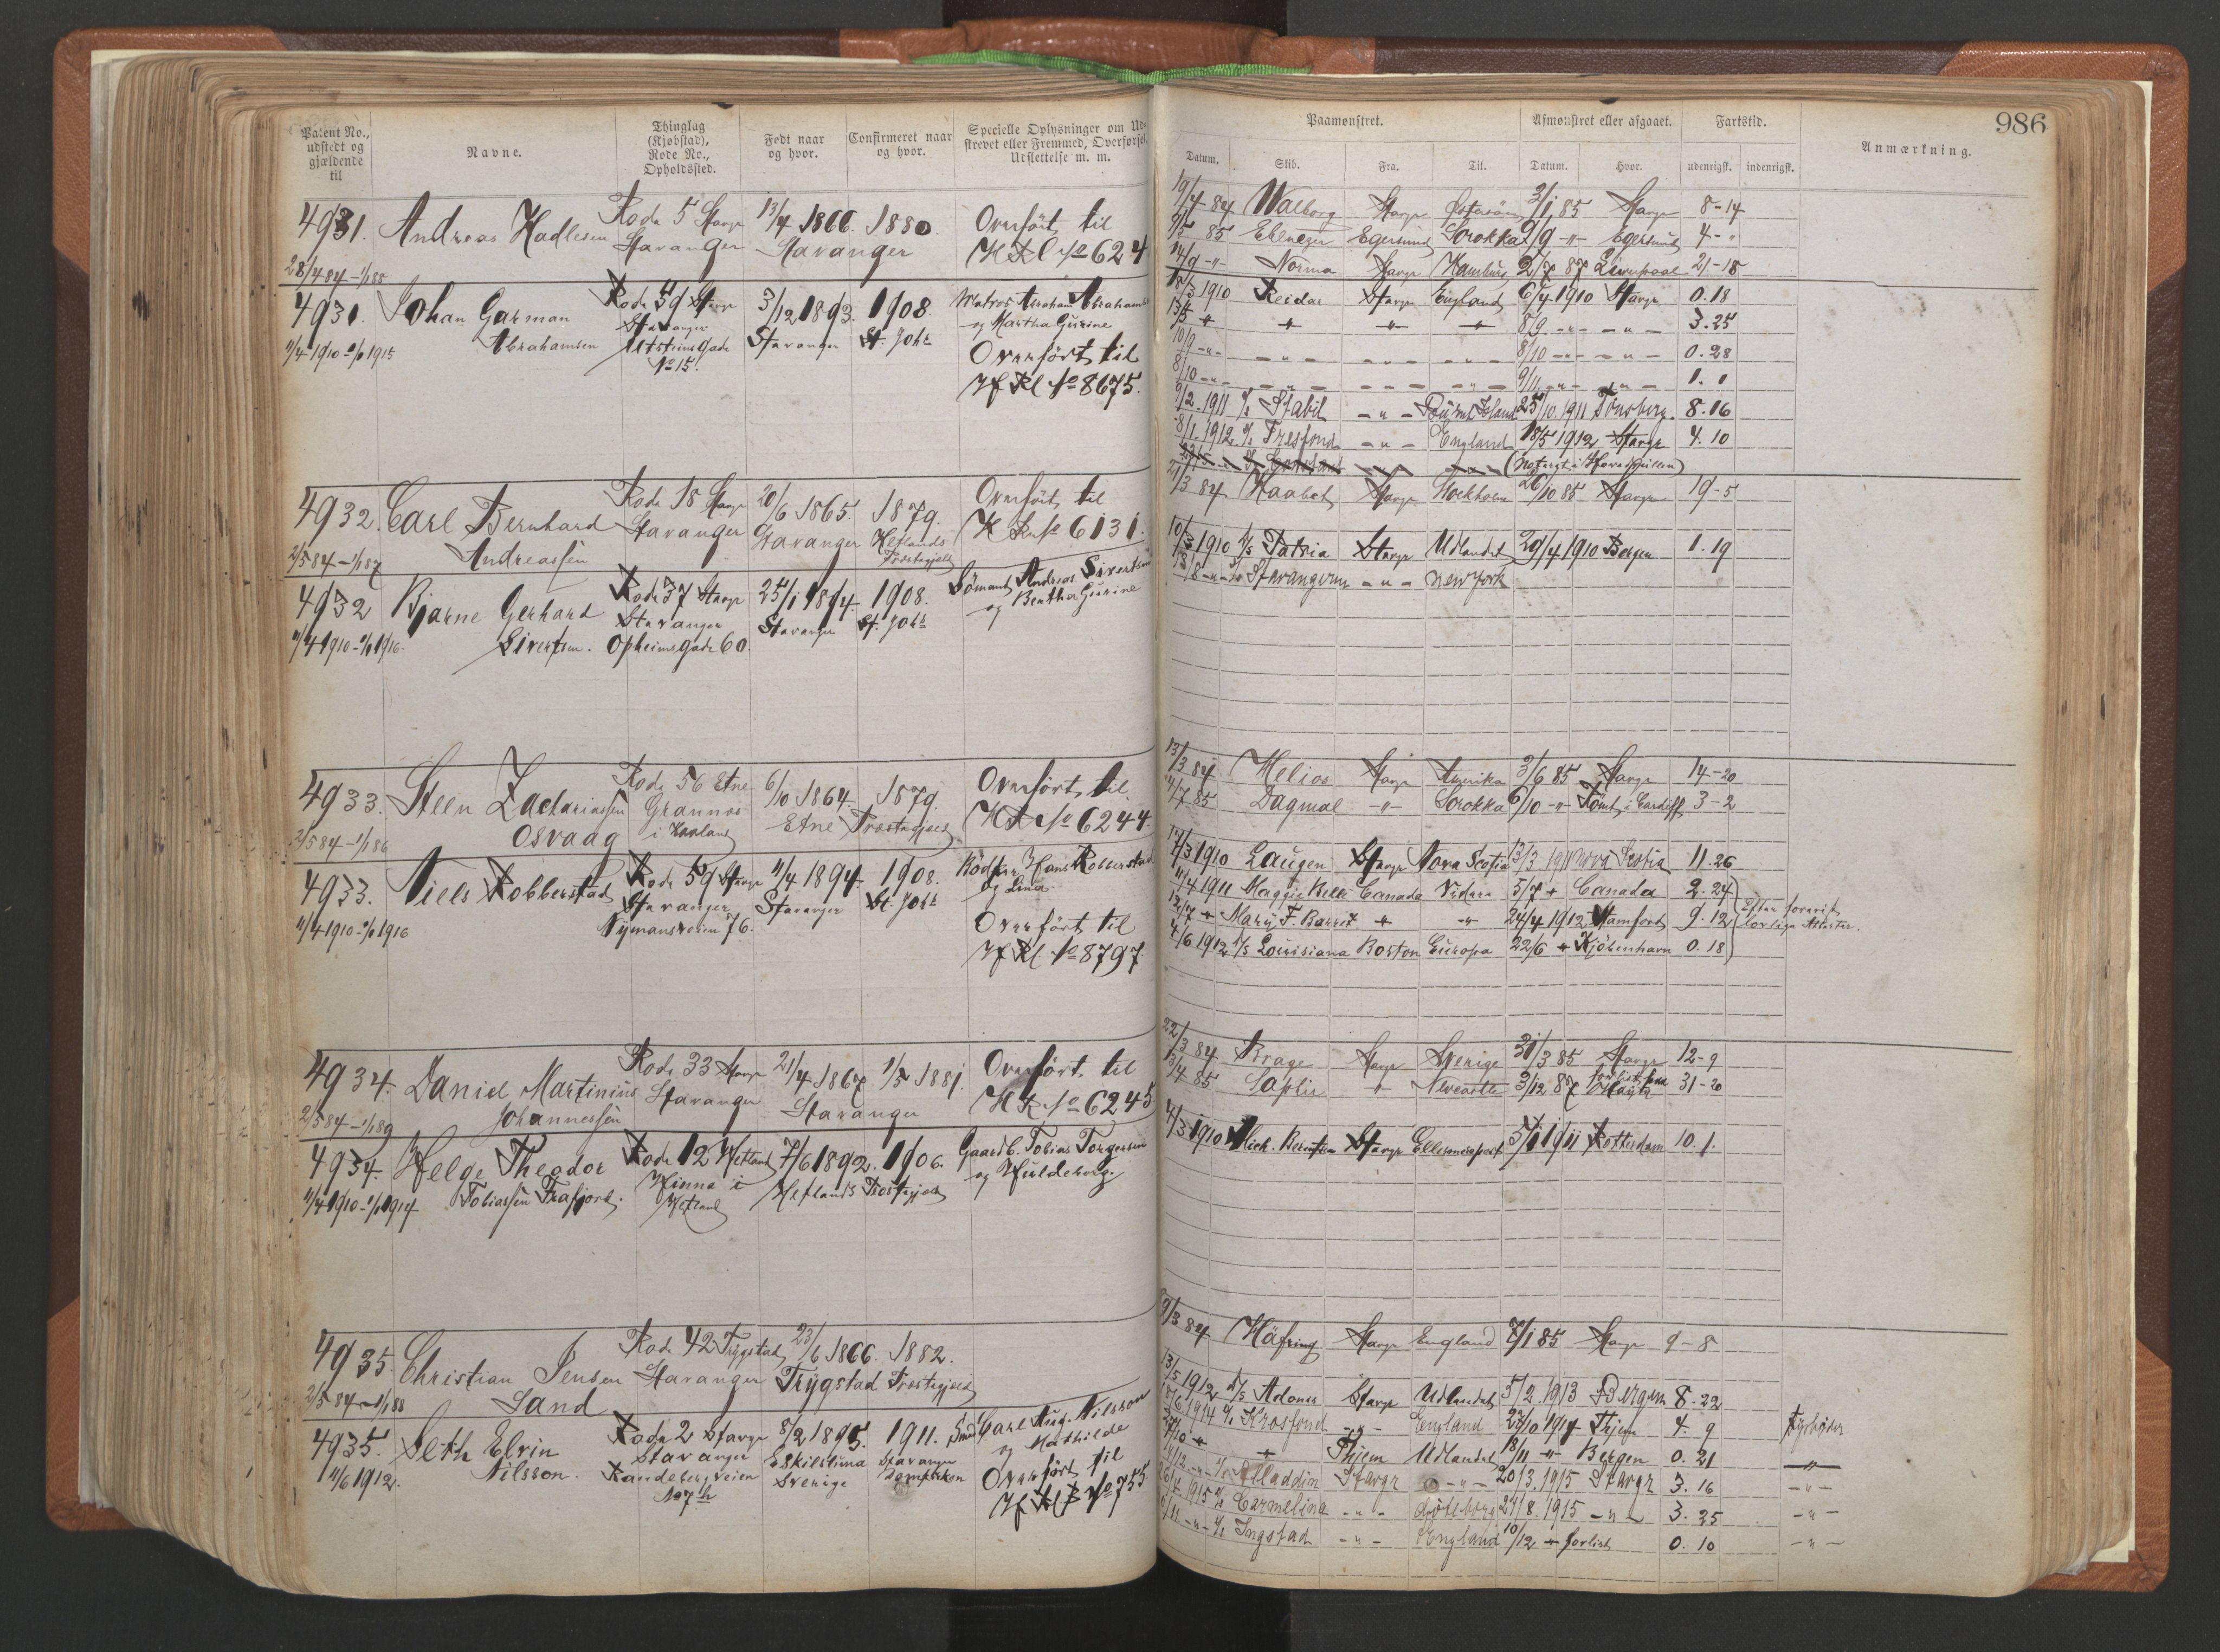 986
Patent No., udstedt og gjældende til
Navne.
Thinglag (Kjøbstad), Rode No., Opholdssted.
Født naar og hvor.
Confirmeret naar og hvor.
Specielle Oplysninger om Udstrevet eller Fremmed, Overførsel, Udslettelse m. m.
Paamønstret.
Afmønstret eller afgaaet.
Fartstid.
Anmærkning.
Datum. Skib. Fra. Til. Datum. Hvor. udenrigsk. indenrigsk.
4931. Andreas Hadlesen Rode 5 Stavgr 13/4 1866. 1880. Overført til
Stavanger Stavanger H Rl No 624
28/4 84 - 1/1 85
19/4 84 Walborg Stavgr Østersøen 3/1 85 Stavgr 8-14
85 Ebenezer Egersund Sorokka 9/9 -"- Egersund 4-"
14/9 -"- Norma Stavgr Hamburg 2/7 87 Liverpool 21-18
4931. Johan Garman Rode 59 Stavgr 3/12 1893. 1908. Matros Abraham Abrahams
Abrahamsen Stavanger Stavanger St. Johs og Martha Gurine
11/4 1910 - 1/1 1915 Utsteinsgade No 15. Overført til
H Rl No 8675.
1910 Reidar Stavgr England 6/4 1910 Stavgr 0.18
8/9 -"- -"- 3.25
10/9 -"- -"- -"- -"- 8/10 -"- -"- 0.28
8/10 -"- -"- -"- -"- 9/11 -"- -"- 1.1
9/2. 1911 Stabil -"- 25/10. 1911 Tønsberg. 8.16
8/1. 1912. Tresfond -"- England 18/5 1912 Stavgr 4.10
4932. Carl Bernhard Rode 18 Stavgr 20/6 1865. 1879. Overført til
Andreassen Stavanger Stavanger Hetlands Præstegjeld H Rl No 6131.
2/5 84 - 1/1 87
21/3 84 Haabet Stavgr Stockholm 26/10 85 Stavgr 19-5
4932 Bjarne Gerhard Rode 37 Stavgr 25/1 1894. 1908. Sømand Andreas Sivertsen
Sivertsen. Stavanger Stavanger St. Johs og Bertha Gurine
11/4 1910 - 1/1 1916. Opheimsgade 60.
10/3 1910 Patria Stavgr Udlandet 29/4 1910 Bergen 1.19
Stavangeren -"- New York
4933. Steen Zachariassen Rode 56 Etne 6/10 1864. 1879 Overført til
Osvaag i Etne Præstegjeld H Rl No 6244
2/5 84 - 1/1 86
13/3 84 Helios Stavgr Amerika 3/6 85 Stavgr 14-20
4/7 85 Dagmal -"- Sorokka 6/10 -"- Rømt i Cardiff 3-2
4933. Niels Robberstad Rode 59 Stavgr 11/4 1894. 1908. Hans Robberstad
Stavanger Stavanger St. Johs og Lina
11/4 1910 - 1/1 1916 Nymansveien 76. Overført til
H Rl No 8797
17/3 1910 Laugen Stavgr Nova Scotia 13/3 1911 Nova Scotia 11.26
11/4 1911 Maggie Belle Canada 5/7 Canada 2.24
12/7 Mary F. Barrit 24/4 1912 Stamford 9.12
4/6 1912 Louisiana Boston Europa 22/6 Kjøbenhavn 0.18
4934. Daniel Martinius Rode 33 Stavgr 21/4 1867 1/5 1881. Overført til
Johannessen Stavanger Stavanger H Rl No 6245
2/5 84 - 1/1 89
22/3 84 Brage Stavgr Sverige 31/3 85 Stavgr 12-9
3/4 85 Saphir " Newcastle 3/12 87 31-20
4934. Helge Theodor Rode 12 Hetland 7/6 1892. 1906. Gaardb. Tobias Torgersen
Tobiassen Frafjord. Hinna i Hetland Hetlands Præstegjeld og Huldeborg
11/4 1910 - 1/1 1914
4/3 1910 Stavgr 5/1 1911 Rotterdam 10.1.
4935. Christian Jensen Rode 42 Trygstad 23/6 1866. 1882.
Sand Stavanger Trygstad Præstegjeld
2/5 84 - 1/1 88
9/3 84 Häfring Stavgr England 7/1 85 Stavgr 9-8
4935. Seth Elvin Rode 2 Stavgr 8/2 1895. 1911. Smed Carl Aug. Nilsson
Nilsson. Stavanger Eskilstuna Stavanger og Mathilde
11/6 1912. Randebergveien Sverige Domkirken Overført til
No 7 b H No 755
13/5 1912 Adona Stavgr Udlandet 5/2 1913 Bergen 8.22
1914 Krosfond -"- England 27/10 1914 Thjem 4.9 Fyrbøder
Thjem Udlandet 18/11 -"- Bergen 0.21 -"-
Alladdin Stavgr -"- 20/3. 1915 Stavgr 3.16 -"-
1915 Carmelina -"- Gøteborg 24/8. 1915 -"- 3.25 -"-
Ingstad -"- England 10/12 forlist 0.10 -"-